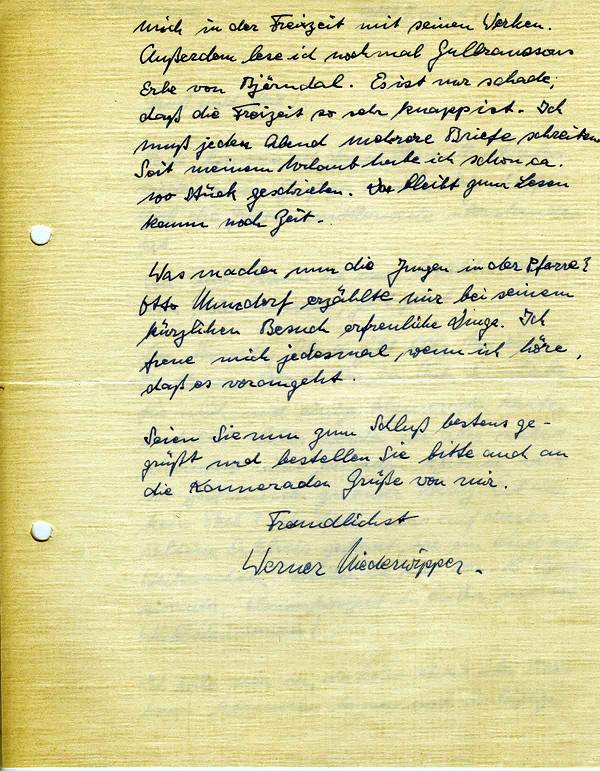 mich in der Freizeit mit seinen Werken.
Außerdem lese ich nochmal Gulbranssons
Erbe von Björndal. Es ist nur schade,
daß die Freizeit so sehr knapp ist. Ich
muß jeden Abend mehrere Briefe schreiben.
Seit meinem Urlaub habe ich schon ca.
100 Stück geschrieben. Da bleibt zum Lesen
kaum noch Zeit.
Was machen nun die Jungen in der Pfarre?
Otto erzählte mir bei seinem
kürzlichen Besuch erfreuliche Dinge. Ich
freue mich jedesmal wenn ich höre,
daß es vorangeht.
Seien Sie nun zum Schluß bestens ge-
grüßt und bestellen Sie bitte auch an
die Kameraden Grüße von mir.
Freundlichst
Werner Niederwipper.